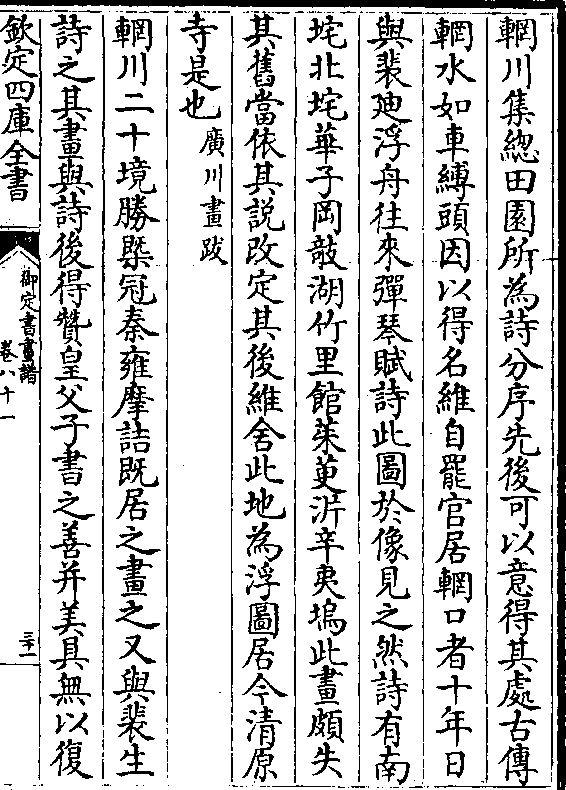 輞川集總田園所為詩分序先後可以意得其處古傳
輞水如車縛頭因以得名維自罷官居輞口者十年日
與裴廸浮舟往來彈琴賦詩此圖於像見之然詩有南
垞北垞華子岡敧湖竹里館茱萸沜辛夷塢此畫頗失
其舊當依其說改定其後維舍此地為浮圖居今清原
寺是也廣川畫跋
輞川二十境勝槩冠秦雍摩詰既居之畫之又與裴生
詩之其畫與詩後得贊皇父子書之善并美具無以復
欽定四庫全書
御定書畫譜
卷八十一
三十一